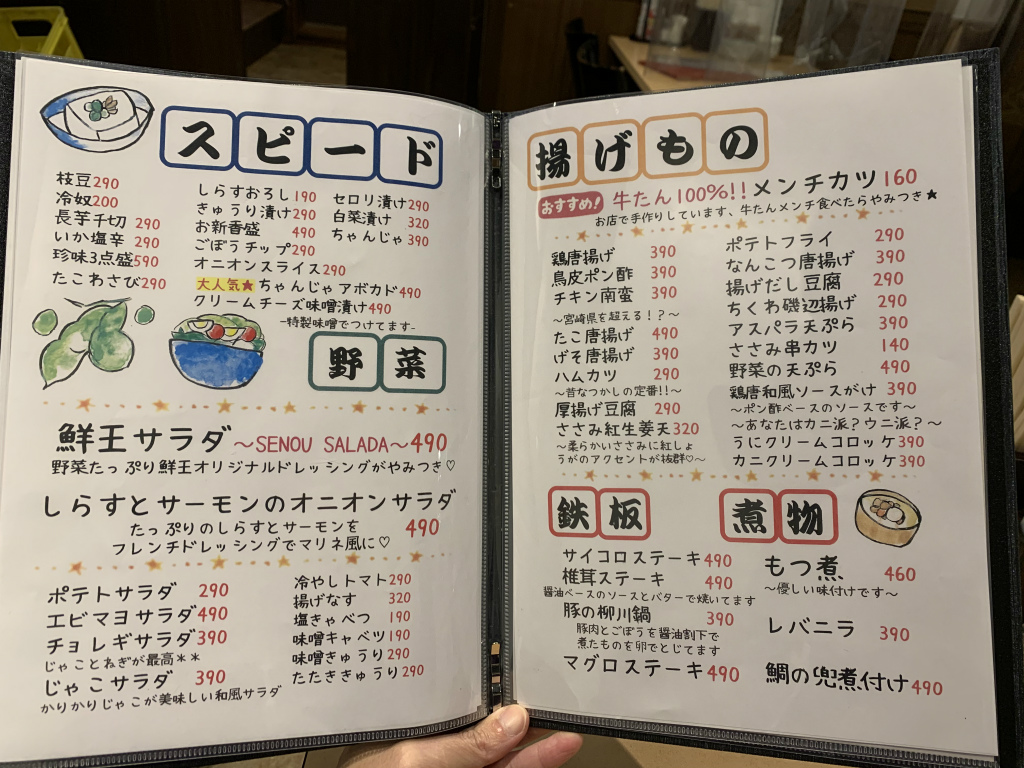 スピード
枝豆290
冷奴200
長芋千切 290
いか塩辛 290
珍味3点盛590
たこわさび290
しらすおろし190
きゅうり漬け290
お新香盛 490
ごぼうチップ290
オニオンスライス290
大人気★ちゃんじゃアボカド490
クリームチーズ味噌漬け490
-特製味噌でつけてます-
セロリ漬け290
白菜漬け 320
ちゃんじゃ390
野菜
鮮王サラダ〜SENOU SALADA〜490
野菜たっぷり鮮王オリジナルドレッシングがやみつき♡
しらすとサーモンのオニオンサラダ
たっぷりのしらすとサーモンを 490
フレンチドレッシングでマリネ風に♡
ポテトサラダ 290
エビマヨサラダ490
チョレギサラダ390
じゃことねぎが最高＊＊
じゃこサラダ 390
かりかりじゃこが美味しい和風サラダ
冷やしトマト290
揚げなす 320
塩きゃべつ 190
味噌キャベツ190
味噌きゅうり290
たたききゅうり290
揚げもの
おすすめ! 牛たん100%!!メンチカツ160
お店で手作りしています、牛たんメンチ食べたらやみつき★
鶏唐揚げ 390
鳥皮ポン酢 390
チキン南蛮 390
〜宮崎県を超える！？〜
たこ唐揚げ 490
げそ唐揚げ 390
ハムカツ 290
〜昔なつかしの定番!!〜
厚揚げ豆腐 290
ささみ紅生姜天320
〜柔らかいささみに紅しょ
うがのアクセントが抜群♡〜
ポテトフライ 290
なんこつ唐揚げ 390
揚げだし豆腐 290
ちくわ磯辺揚げ 290
アスパラ天ぷら 390
ささみ串カツ 140
野菜の天ぷら 490
鶏唐和風ソースがけ 390
〜ポン酢ベースのソースです〜
〜あなたはカニ派？ウニ派？〜
うにクリームコロッケ390
カニクリームコロッケ390
鉄板
サイコロステーキ490
椎茸ステーキ 490
醤油ベースのソースとバターで焼いてます
豚の柳川鍋 390
豚肉とごぼうを醤油割下で
煮たものを卵でとじてます
マグロステーキ490
煮物
もつ煮 460
〜優しい味付けです〜
レバニラ 390
鯛の兜煮付け490